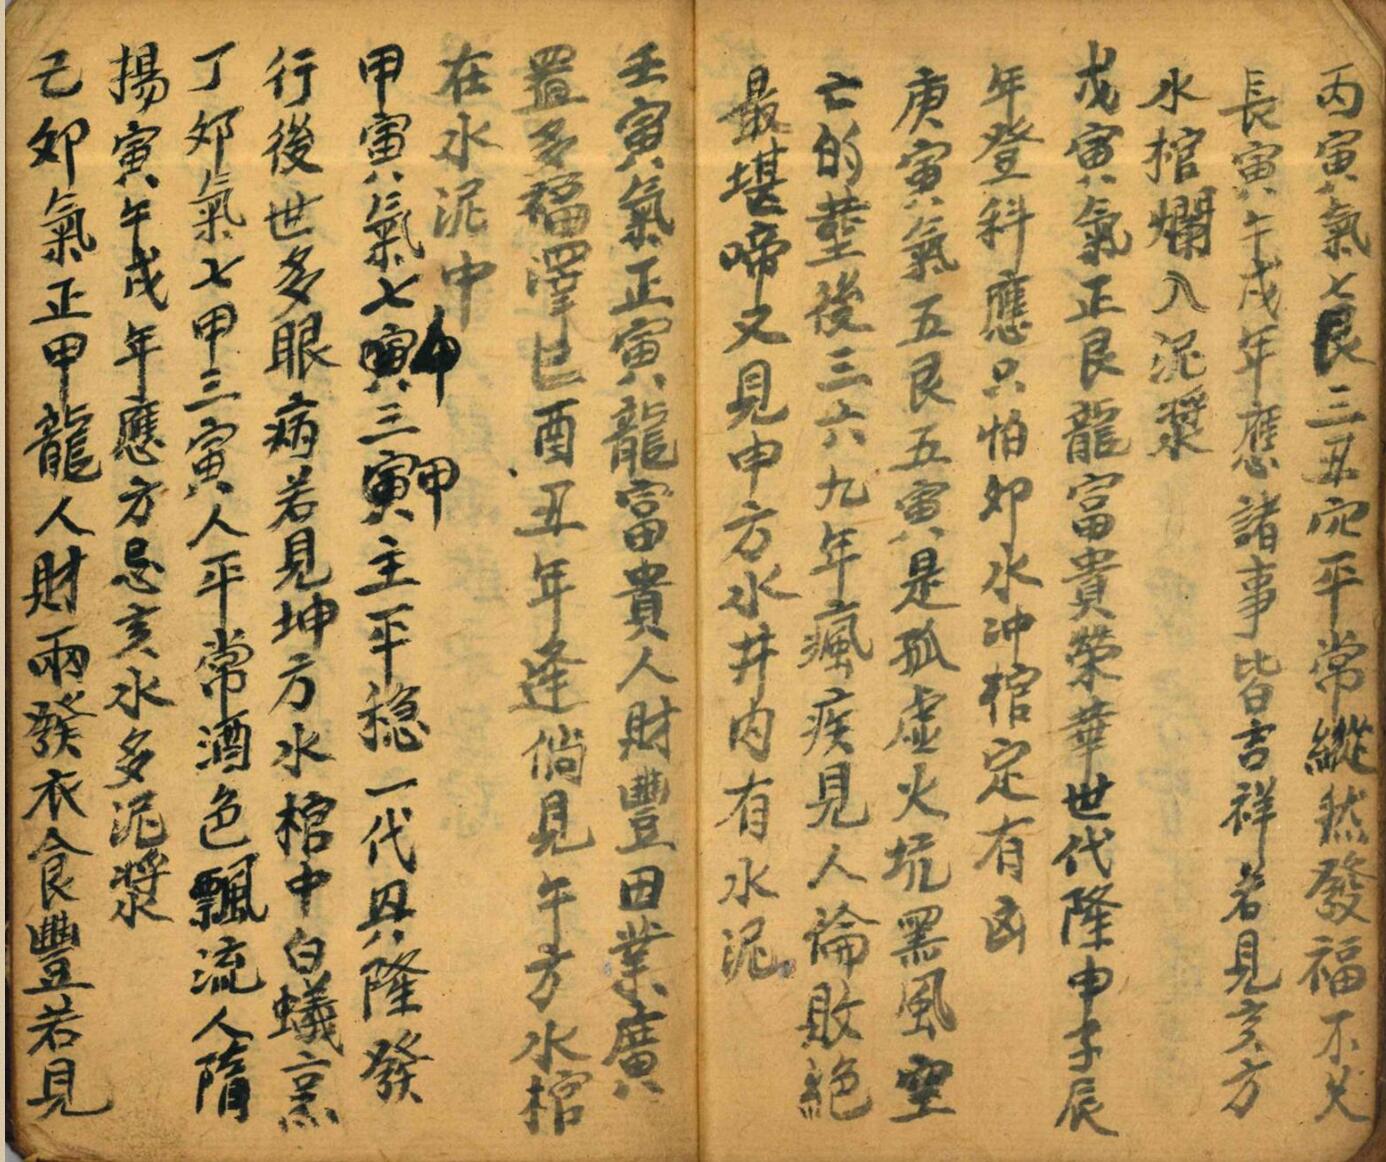 丙寅氣七艮三丑穴平常縱然發福不久
長寅午戌年應諸事皆吉祥若見亥方
水棺爛入泥漿
戊寅氣正艮龍富貴榮華世代隆申子辰
年登科應只怕卯水冲棺定有凶
庚寅氣五艮五寅是孤虛火坑黑風空
亡的塟後三六九年瘋疾見人倫敗絕
最堪啼又見申方水井內有水泥
壬寅氣正寅龍富貴人財豐田業廣
置多福澤巳酉丑年逢倘見午方水棺
在水泥中
甲寅氣七寅甲三寅甲主平稳一代興隆發
行後世多眼病若見坤方水棺中白蟻烹
丁卯氣七甲三寅人平常酒色飄流人隋
揚寅午戌年應方忌亥水多泥漿
己卯氣正甲龍人財兩發衣食豐若見